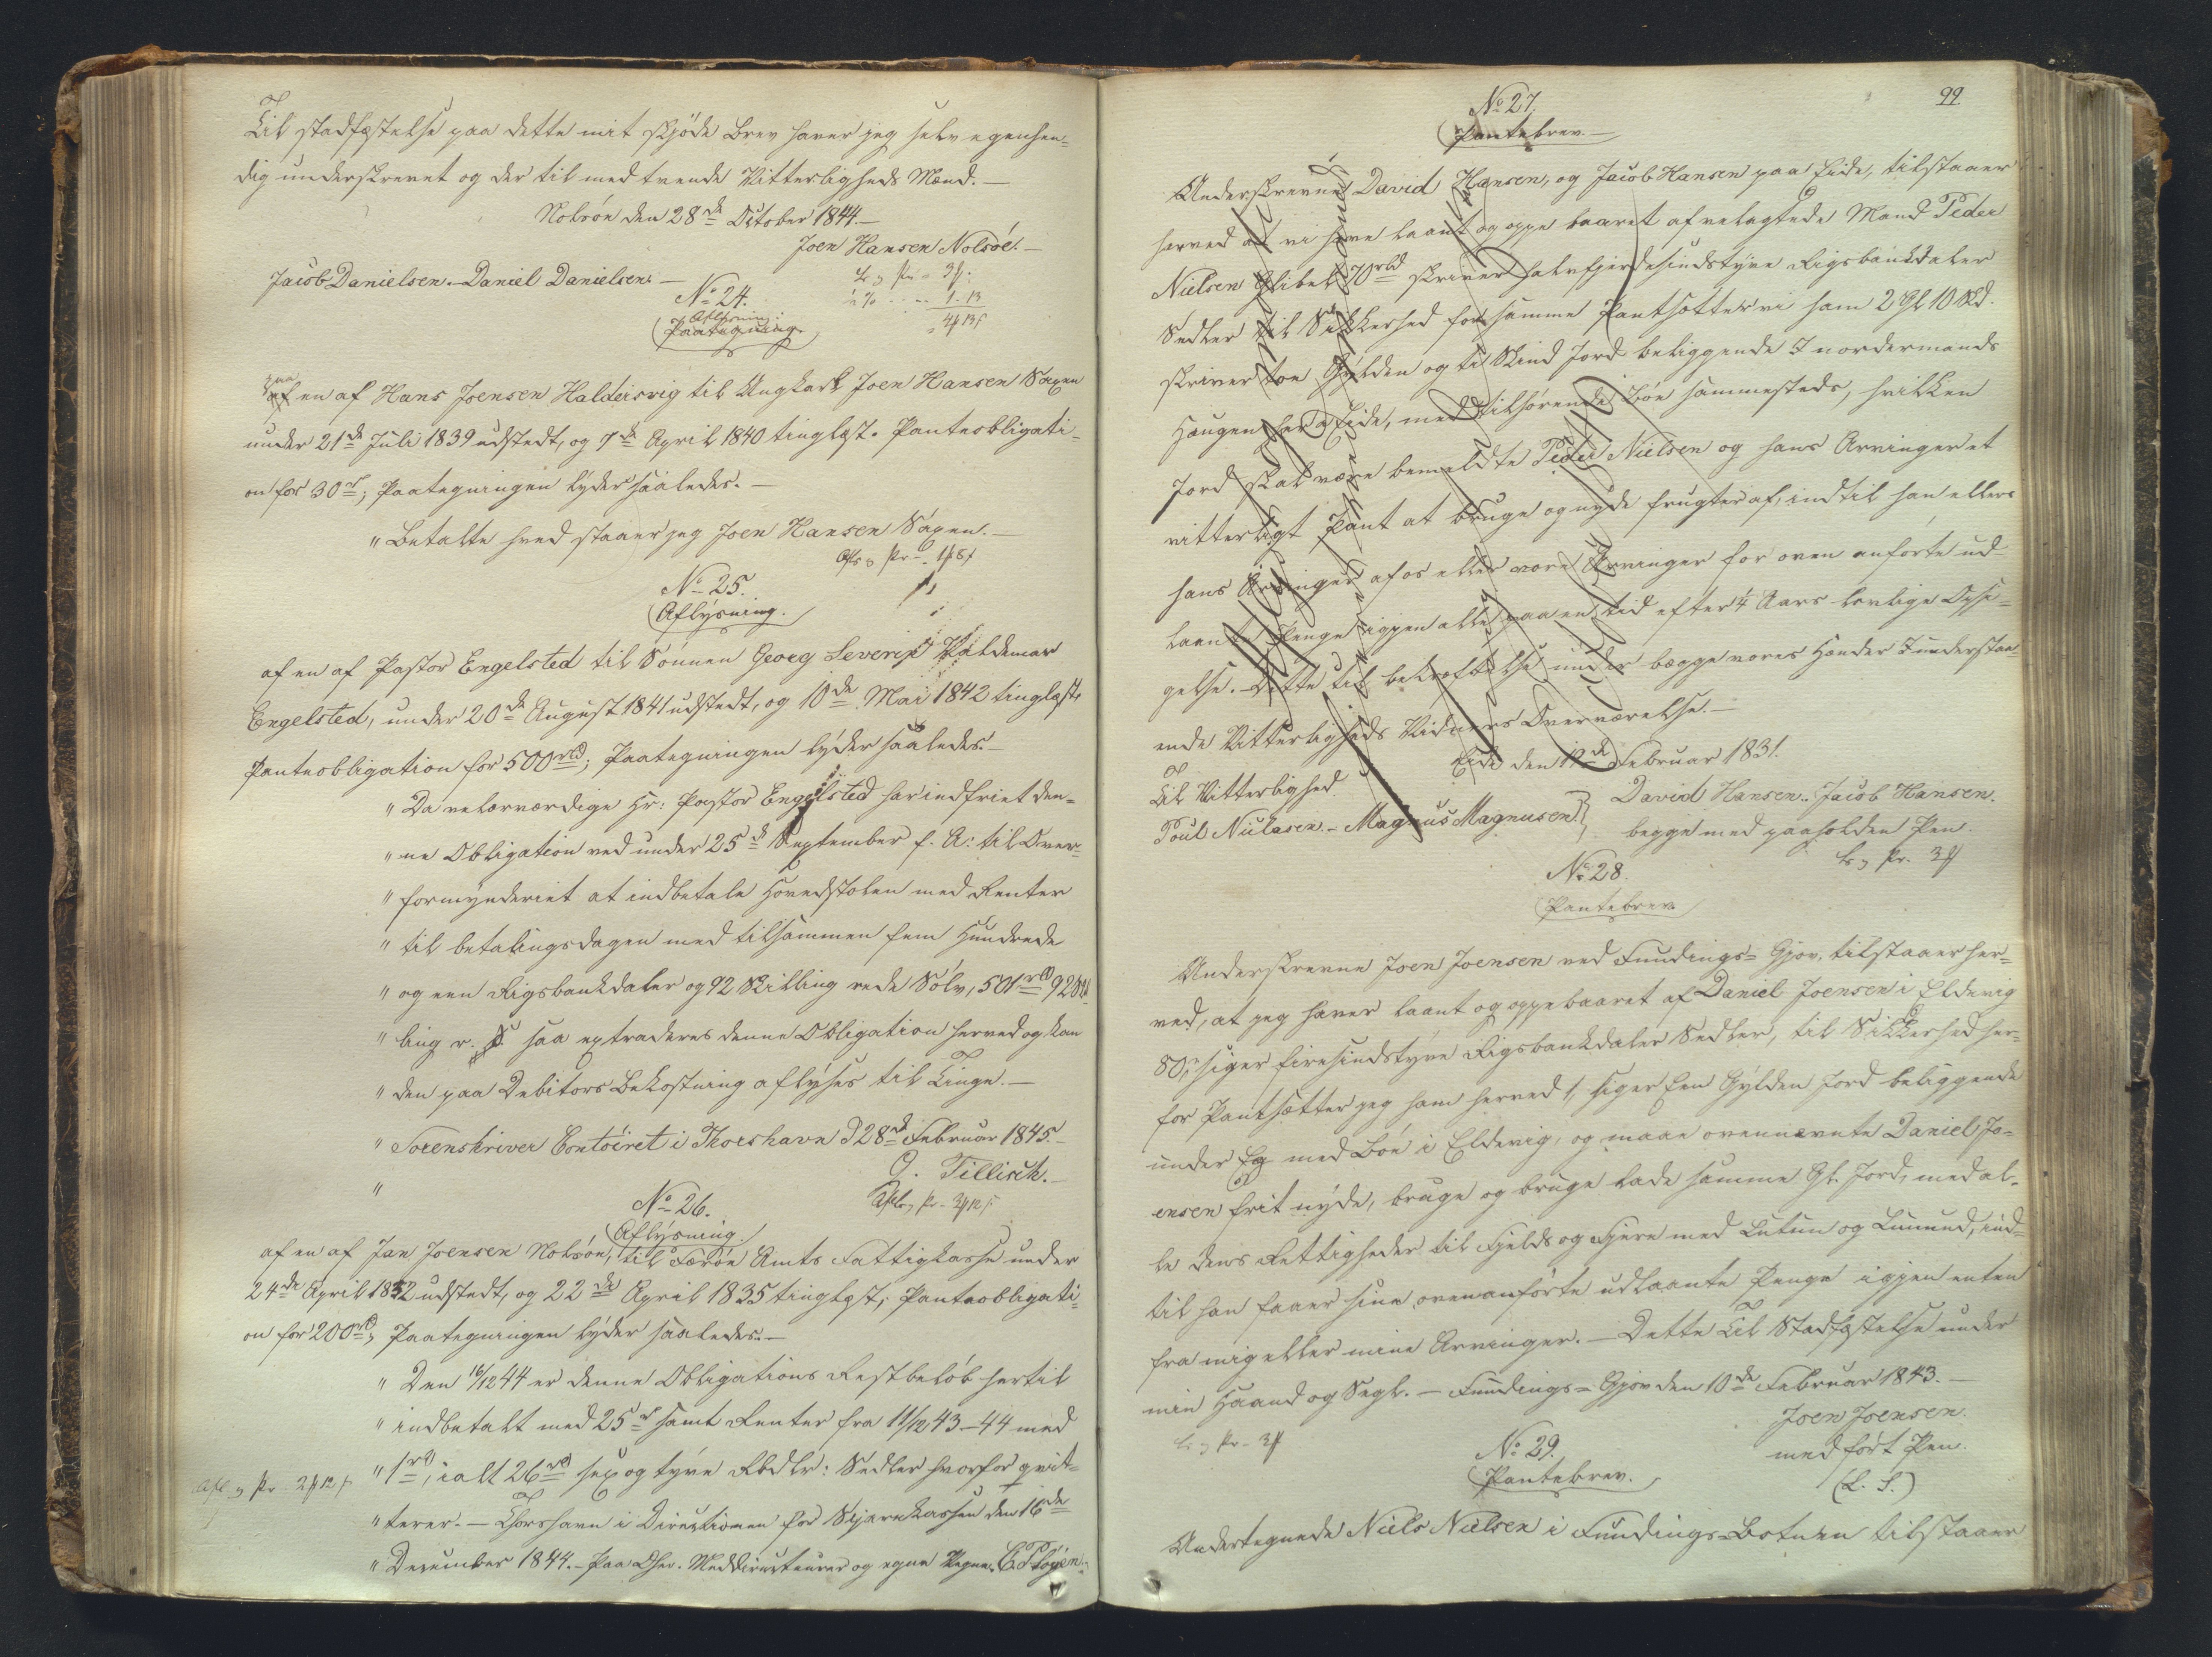 Til stadfæstelse paa dette mit skjöde Brev haver jeg selv egenhen=
dig underskrevet og der til med tvende Vitterligheds Mænd.—
Nolsöe den 28de October 1844.—
Joen Hansen Nolsöe.—
Jacob Danielsen.—Daniel Danielsen.—
No 24.
Aflysning
Paategning
paa en af Hans Joensen Haldersvig til Ungkarl Joen Hansen Saxen
under 21de Juli 1839 udstedt, og 7de April 1840 tinglæst. Panteobligati=
on for 30rd; Paategningen lyder saaledes.—
" Betalte hved staaer jeg Joen Hansen Saxen.—
No 25.
Aflysning.
af en af Pastor Engelsted til Sönnen Georg Severin Valdemar
Engelsted, under 20de August 1841 udstedt, og 10de Mai 1842 tinglæst.
Panteobligation for 500rbd; Paategningen lyder saaledes.—
" Da velærværdige Hr: Pastor Engelsted har indfriet den=
" ne Obligation ved under 25de September f. A: til Over=
" formynderiet at indbetale Hovedstolen med Renter
" til betalingsdagen med tilsammen fem Hundrede
" og een Rigsbankdaler og 92 Skilling rede Sölv, 501rbd 92
" saa extraderes denne Obligation herved og kan
" den paa Debitors Bekostning aflyses til Tinge.—
" Sorenskriver Contoiret i Thorshavn d 28de Februar 1845.—
" Tillisch.—
No 26.
Aflysning.
af en af Jan Joensen Nolsöe, til Færöe Amts Fattigkasse under
24de April 1832 udstedt, og 22de April 1835 tinglæst, Panteobligati=
on for 200rbd; Paategningen lyder saaledes.—
" Den 16/12 44 er denne Obligations Restbelöb hertil
" indbetalt med 25rd samt Renter fra 11/12 43–44 med
" 1rbd, ialt 26rbd sex og tyve Rbdlr: Sedler hvorfor qvit=
" terer.— Thorshavn i Directionen for Sparekassen den 16de
" December 1844.— Paa Meddirecteurer og egne Vegne. C Plöyen.
99
No 27.
Pantebrev.—
Underskrevne David Hansen, og Jacob Hansen paa Eide, tilstaaer
herved at vi have laant og oppe baaret af velagtede Mand Peder
Nielsen Glibre 70rbd skriver halvfjerdesindstyve Rigsbankdaler
Sedler til Sikkerhed for samme Pantsætter vi ham 2 Gl 10 Skd.
skriver toe Gylden og ti Skind Jord beliggende I nordermands
Haugen her a Eide, med tilhörende Böe sammesteds, hvilken
Jord skal være bemeldte Peder Nielsen og hans Arvinger et
vitterligt Pant at bruge og nyde frugter af, indtil han eller
hans Arvinger af os eller vore Arvinger for oven anförte ud=
laante Penge igjen alle paa en tid efter 4 Aars lovlige Opsi=
gelse.—Dette til bekræftelse under begge vores Hænder I understaa=
ende Vitterligheds Vidners Overværelse.—
Eide den 19de Februar 1831.
Til Vitterlighed.
David Hansen.. Jacob Hansen.
Poul Niclasen.— Magnus Magnusen.
begge med paaholden Pen.
No 28.
Pantebrev.
Underskrevne Joen Joensen ved Fundings= Gjov. tilstaaer her=
ved, at jeg haver laant og oppebaaret af Daniel Joensen i Eldevig
80, siger firesindstyve Rigsbankdaler Sedler, til Sikkerhed her=
for Pantsætter jeg ham herved 1, siger Een Gylden Jord beliggende
under Eg med Böe i Eldevig, og maae ovennævnte Daniel Jo=
ensen frit nyde, bruge og bruge lade samme Gl. Jord, med al=
le dens Rettigheder til Fjelds og Fjere med Lutun og Lunund, ind=
til han faaer sine ovenanförte udlaante Penge igjen enten
fra mig eller mine Arvinger.— Dette til Stadfæstelse under
min Haand og Segl.— Fundings= Gjov den 10de Februar 1843.—
Joen Joensen.
med fört Pen.
(L. S.)
No 29.
Pantebrev.
Undertegnede Niels Nielsen i Fundings=Botnen tilstaaer